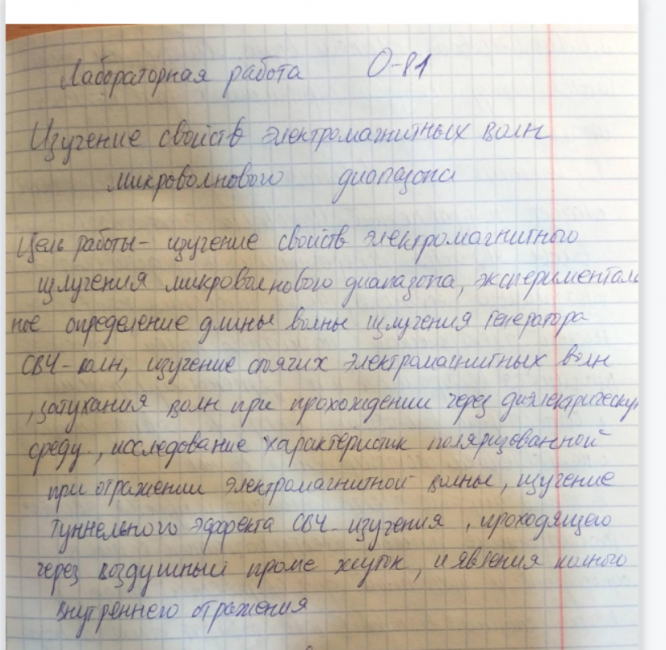 Лабораторная работа О-81
Изучение свойств электромагнитных волн
микроволнового диапазона
Цель работы - изучение свойств электромагнитного
излучения микроволнового диапазона, эксперименталь
ное определение длины волны излучения генератора
СВЧ-волн, изучение стоячих электромагнитных волн
, затухания волн при прохождении через диэлектрическую
среду, исследование характеристик поляризованной
при отражении электромагнитной волны, изучение
туннельного эффекта СВЧ-изучения, проходящего
через воздушный проме жуток, и явления полного
внутреннего отражения